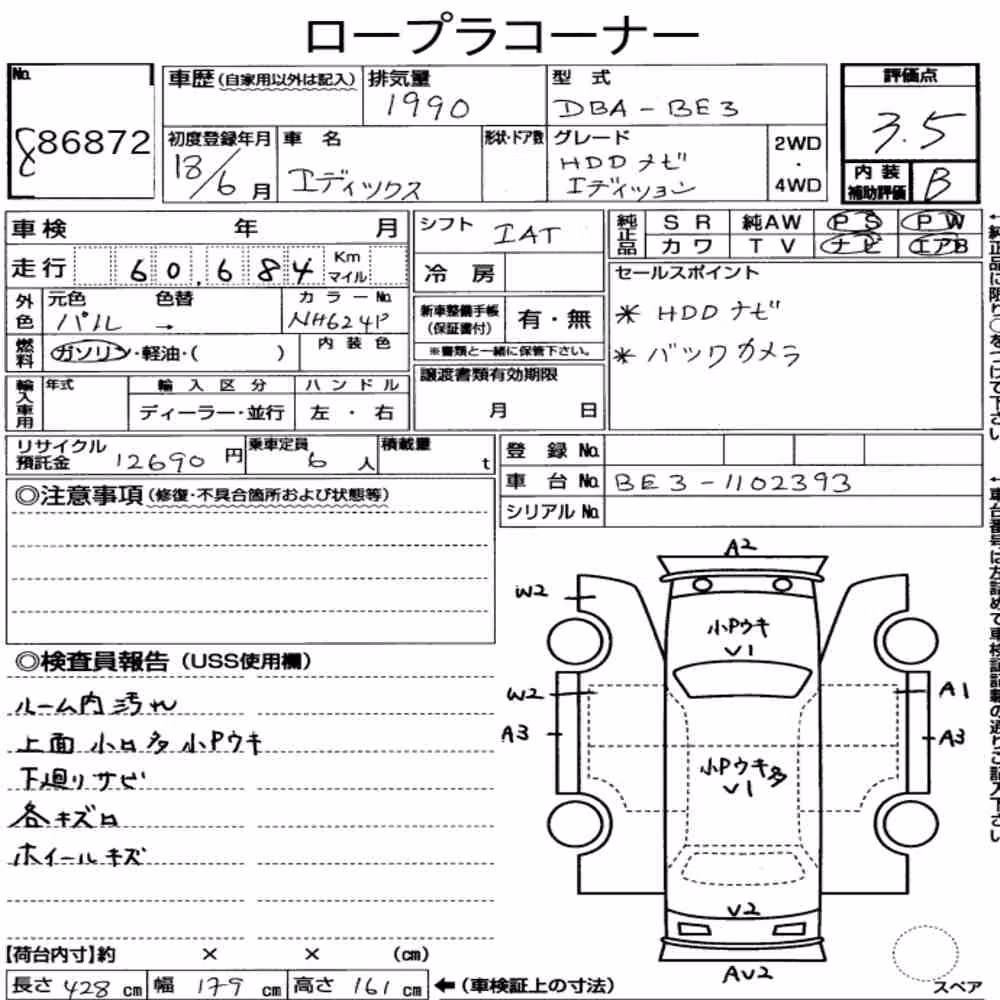 ロープラコーナー
No. 86872
車歴(自家用以外は記入) 排気量 1990 型式 DBA-BE3 評価点 3.5
初度登録年月 18/6月 車名 エディックス 形状・ドア数 グレード HDDナビ エディション 2WD・4WD 内装補助評価 B
車検 年 月
走行 60,684 Km マイル
外色 元色 パール 色替 → カラーNo. NH624P
燃料 ガソリン・軽油・( ) 内装色
輸入車用 年式 輸入区分 ディーラー・並行 ハンドル 左・右
シフト IAT
冷房
新車整備手帳(保証書付) 有・無
※書類と一緒に保管下さい。
譲渡書類有効期限 月 日
純正品 SR 純AW PS PW
カワ TV ナビ エアB
セールスポイント
* HDDナビ
* バックカメラ
リサイクル預託金 12690円 乗車定員 6人 積載量 t
登録No.
車台No. BE3-1102393
シリアルNo.
◎注意事項(修復・不具合箇所および状態等)
◎検査員報告(USS使用欄)
ルーム内汚れ
上面 小口多 小Pウキ
下廻りサビ
各キズ口
ホイールキズ
A2
W2
小Pウキ
V1
W2
A1
A3
A3
小Pウキ多
V1
V2
AV2
スペア
【荷台内寸】約 × × (cm)
長さ 428 cm 幅 179 cm 高さ 161 cm ←(車検証上の寸法)
←純正品に限り○をつけて下さい
←車台番号は左詰めで車検証記載の通りご記入下さい